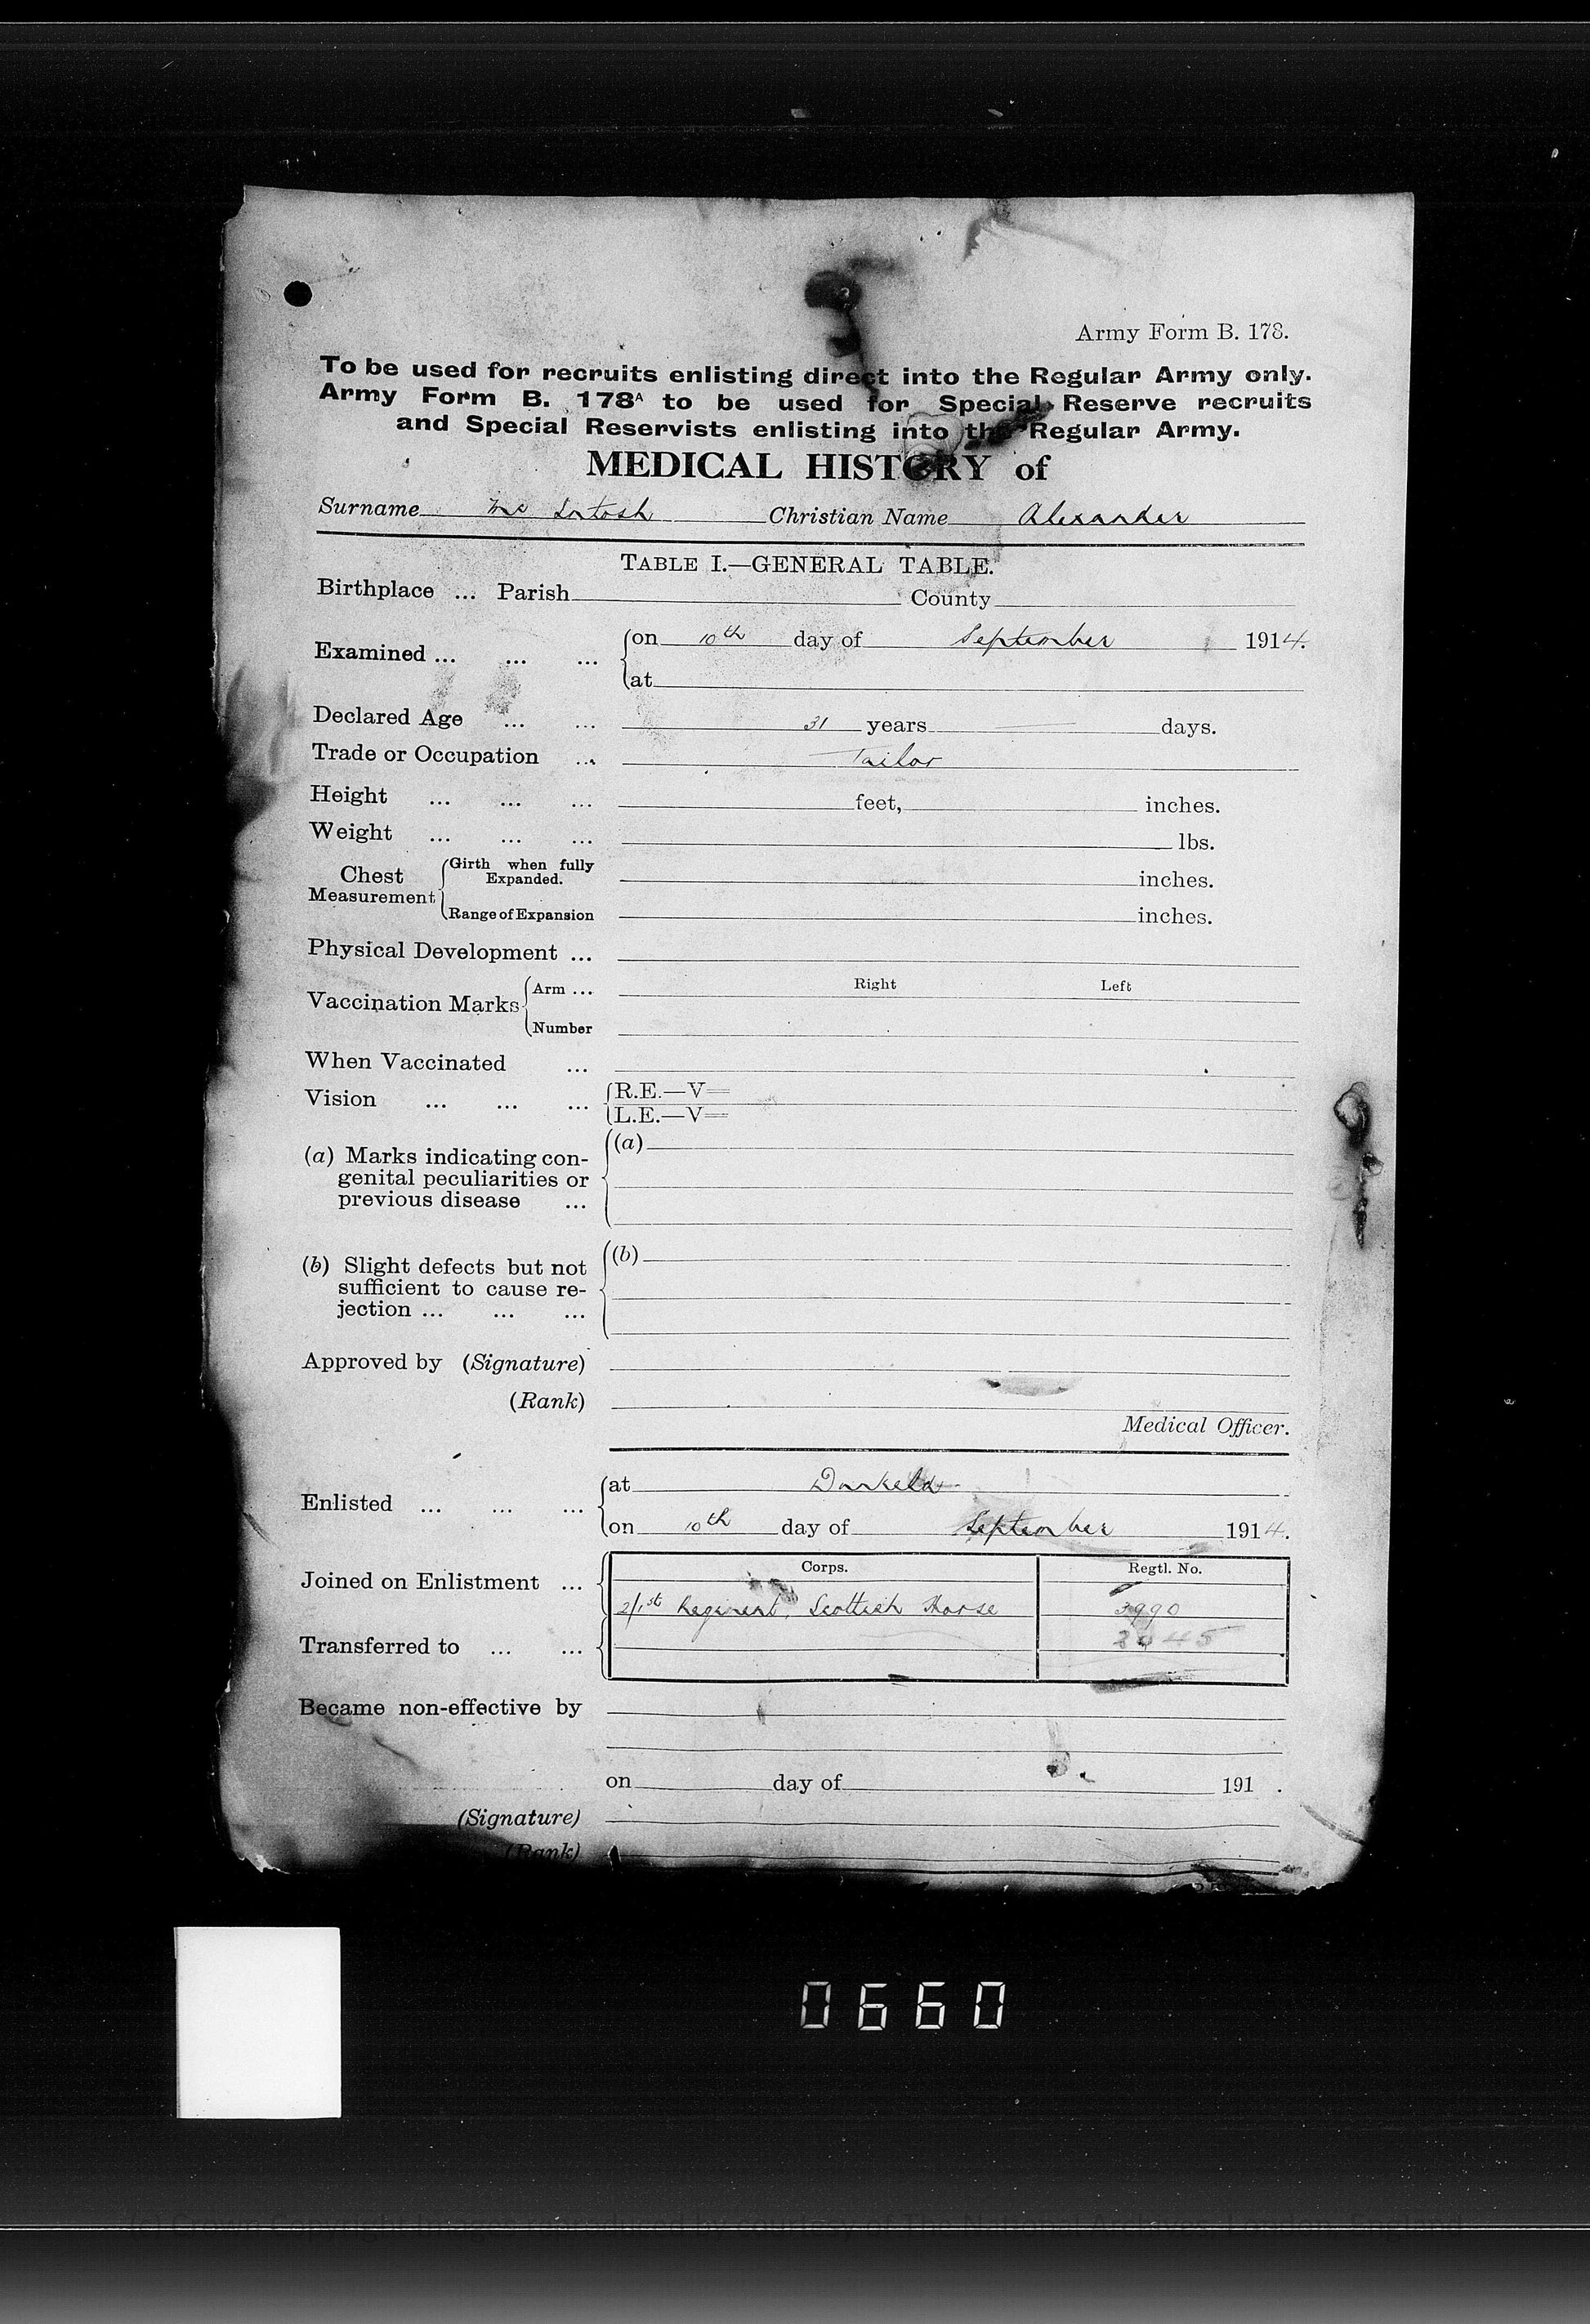 Army Form B. 178.
To be used for recruits enlisting direct into the Regular Army only.
Army Form B. 178A to be used for Special Reserve recruits
and Special Reservists enlisting into the Regular Army.
MEDICAL HISTORY of
Surname Mc Intosh Christian Name Alexander
TABLE I.—GENERAL TABLE.
Birthplace ... Parish County
Examined ... ... ... on 10th day of September 1914.
at
Declared Age ... ... 31 years — days.
Trade or Occupation ... Tailor
Height ... ... ... feet, inches.
Weight ... ... ... lbs.
Chest Measurement Girth when fully Expanded. inches.
Range of Expansion inches.
Physical Development ...
Vaccination Marks Arm ... Right Left
Number
When Vaccinated ...
Vision ... ... ... R.E.—V=
L.E.—V=
(a) Marks indicating con- (a)
genital peculiarities or
previous disease ...
(b) Slight defects but not (b)
sufficient to cause re-
jection ... ... ...
Approved by (Signature)
(Rank)
Medical Officer.
Enlisted ... ... ... at Dunkeld
on 10th day of September 1914.
Corps. Regtl. No.
Joined on Enlistment ... 2/1st Regiment, Scottish Horse 3990
Transferred to ... ... 2045
Became non-effective by
on day of 191 .
(Signature)
(Rank)
0660
(c) Crown Copyright Images reproduced by courtesy of The National Archives, London, England.